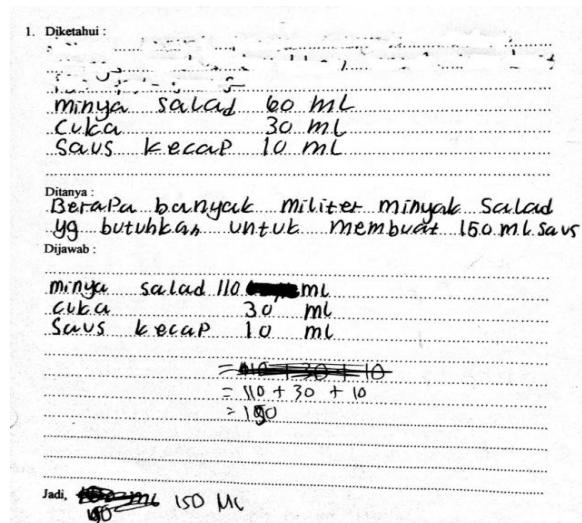 1. Diketahui :
minya salad 60 ml
cuka 30 ml
Saus kecap 10 ml
Ditanya :
Berapa banyak militer minyak Salad
yg butuhkan untuk membuat 150 ml saus
Dijawab :
minya salad 110 ml
cuka 30 ml
Saus kecap 10 ml
= 110 + 30 + 10
= 110 + 30 + 10
= 150
Jadi, 150 Ml